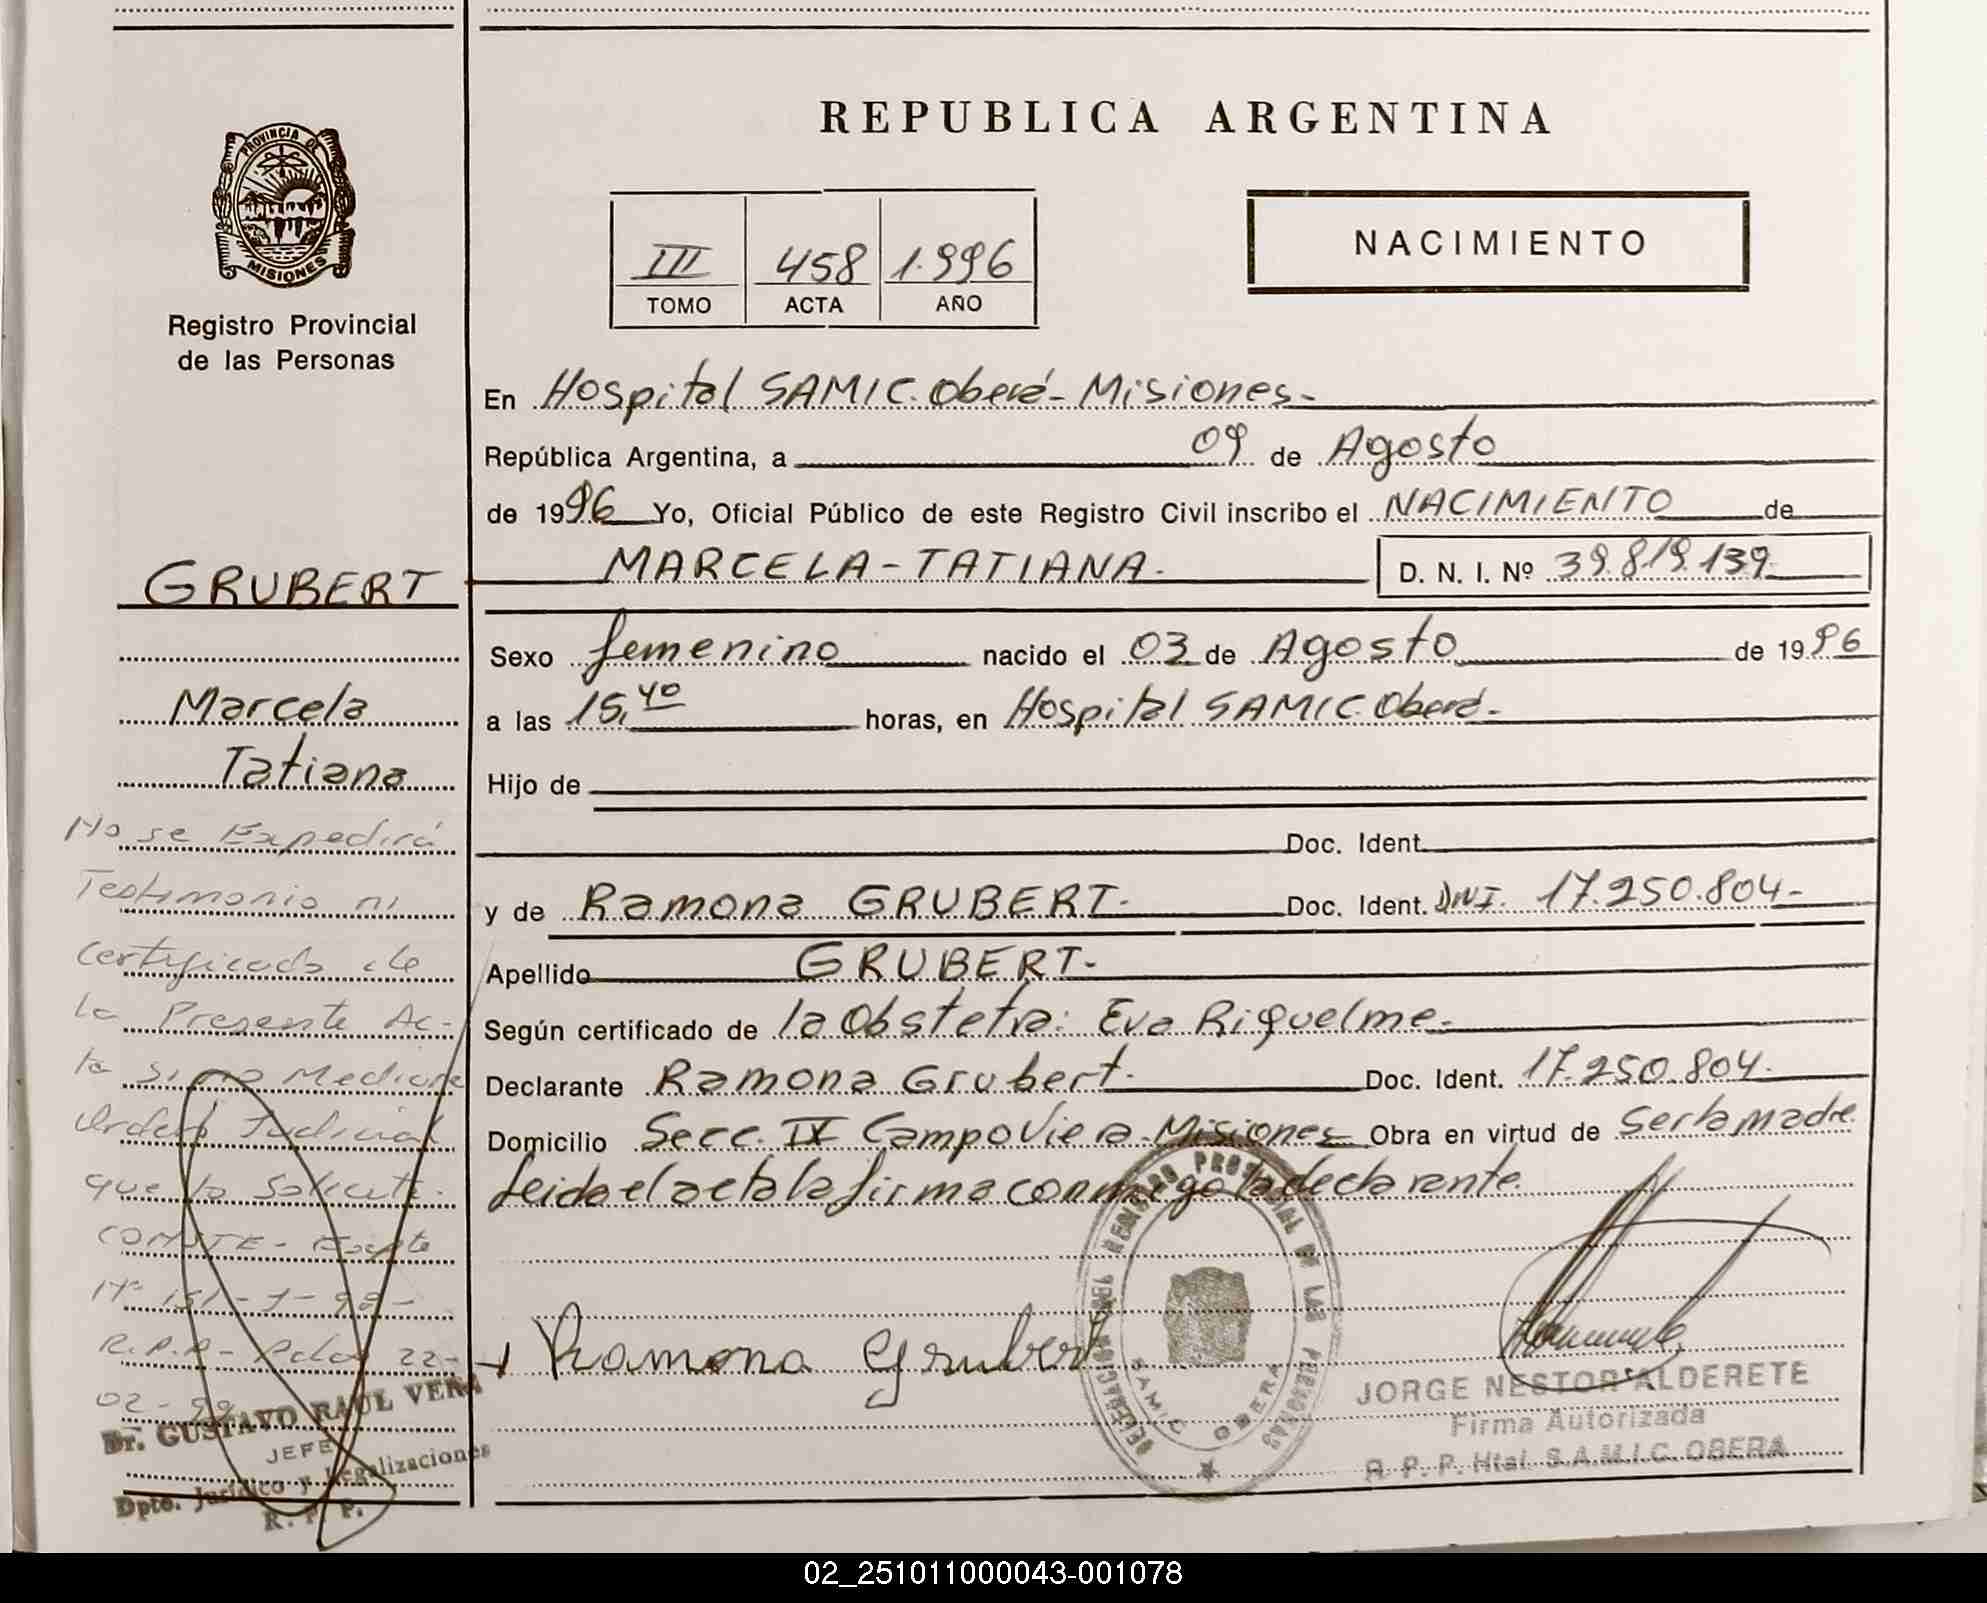 REPUBLICA ARGENTINA
PROVINCIA DE
MISIONES
Registro Provincial
de las Personas
III 458 1.996
TOMO ACTA AÑO
NACIMIENTO
En Hospital SAMIC. Oberá - Misiones -
República Argentina, a 09 de Agosto
de 1996 Yo, Oficial Público de este Registro Civil inscribo el NACIMIENTO de
MARCELA - TATIANA. D. N. I. Nº 39.819.139
Sexo femenino nacido el 03 de Agosto de 1996
a las 15,40 horas, en Hospital SAMIC Oberá -
Hijo de
Doc. Ident.
y de Ramona GRUBERT - Doc. Ident. DNI. 17.250.804 -
Apellido GRUBERT -
Según certificado de la Obstetra: Eva Riquelme -
Declarante Ramona Grubert - Doc. Ident. 17.250.804.
Domicilio Secc. IX Campo Viera - Misiones Obra en virtud de Ser la madre
Leida el acta la firma conmigo la declarante.
Ramona Grubert
REGISTRO PROVINCIAL DE LAS PERSONAS
SAMIC OBERA
JORGE NESTOR ALDERETE
Firma Autorizada
R. P. P. Htal. S.A.M.I.C. OBERA
GRUBERT
Marcela
Tatiana
No se Expedirá
Testimonio ni
Certificado de
la Presente Ac-
ta Sino Mediare
Orden Judicial
que lo Solicite.
CONSTE - Expte
Nº 151 - 1 - 99 -
R.P.P - 22 -
02 - 99
Dr. GUSTAVO RAUL VERA
JEFE
Dpto. Jurídico y Legalizaciones
R. P. P.
02_251011000043-001078